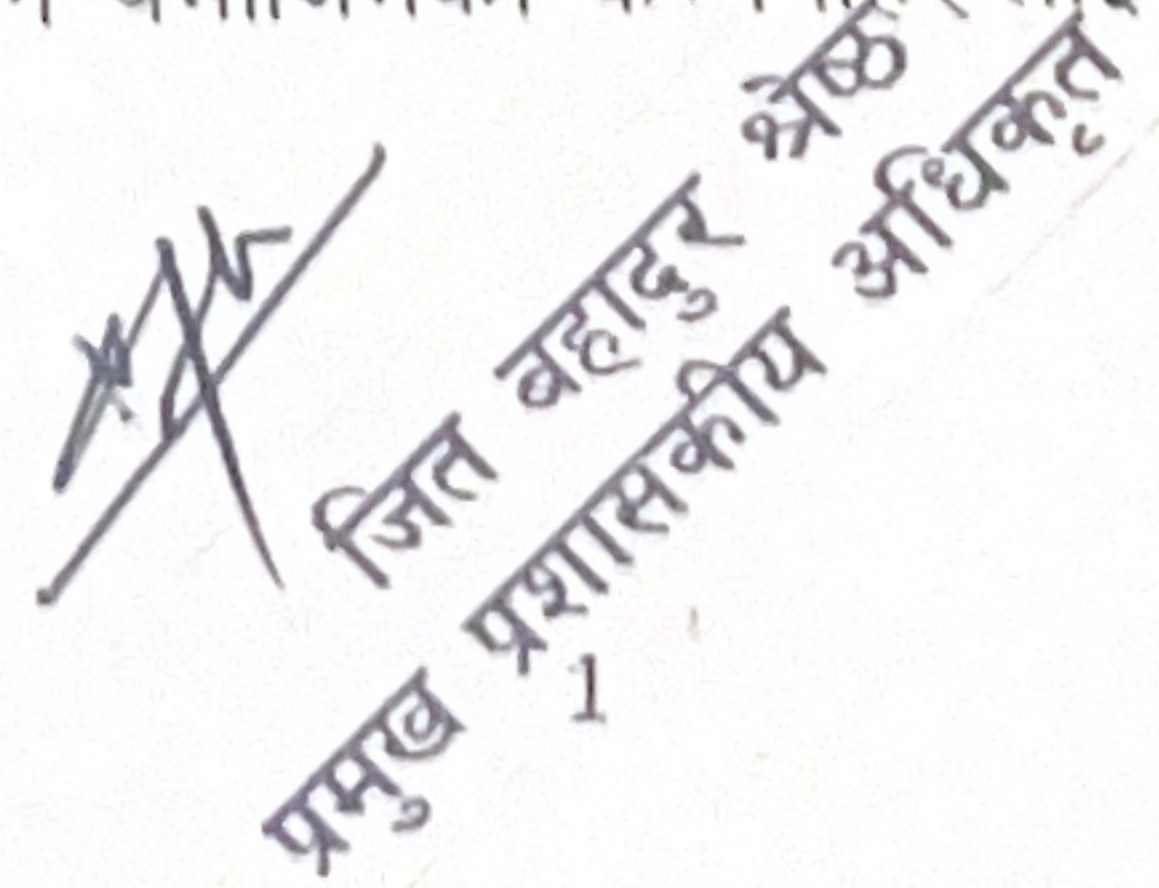 जित बहादुर श्रेष्ठ
प्रमुख प्रशासकीय अधिकृत
1